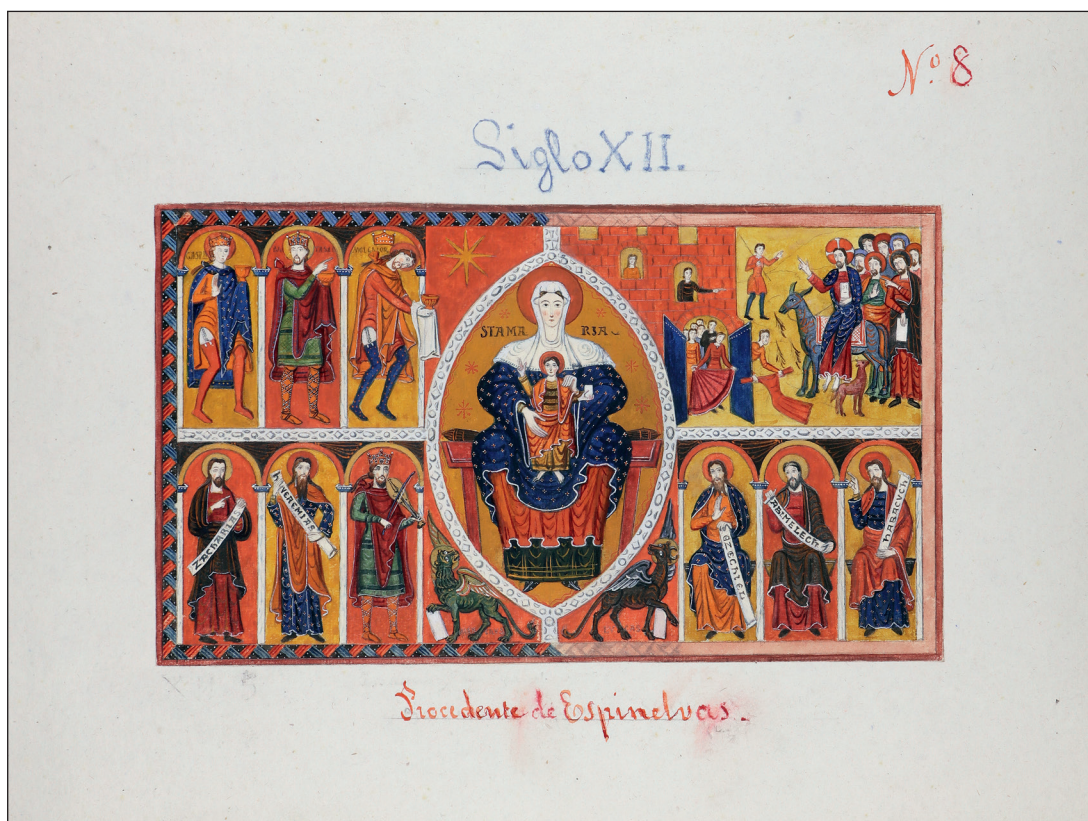 Nº 8
Siglo XII.
STA MA RIA
ZACHARIAS
HIEREMIAS
EZECHIEL
ABIMELECH
HABACUCH
Procedente de Espinelvas.